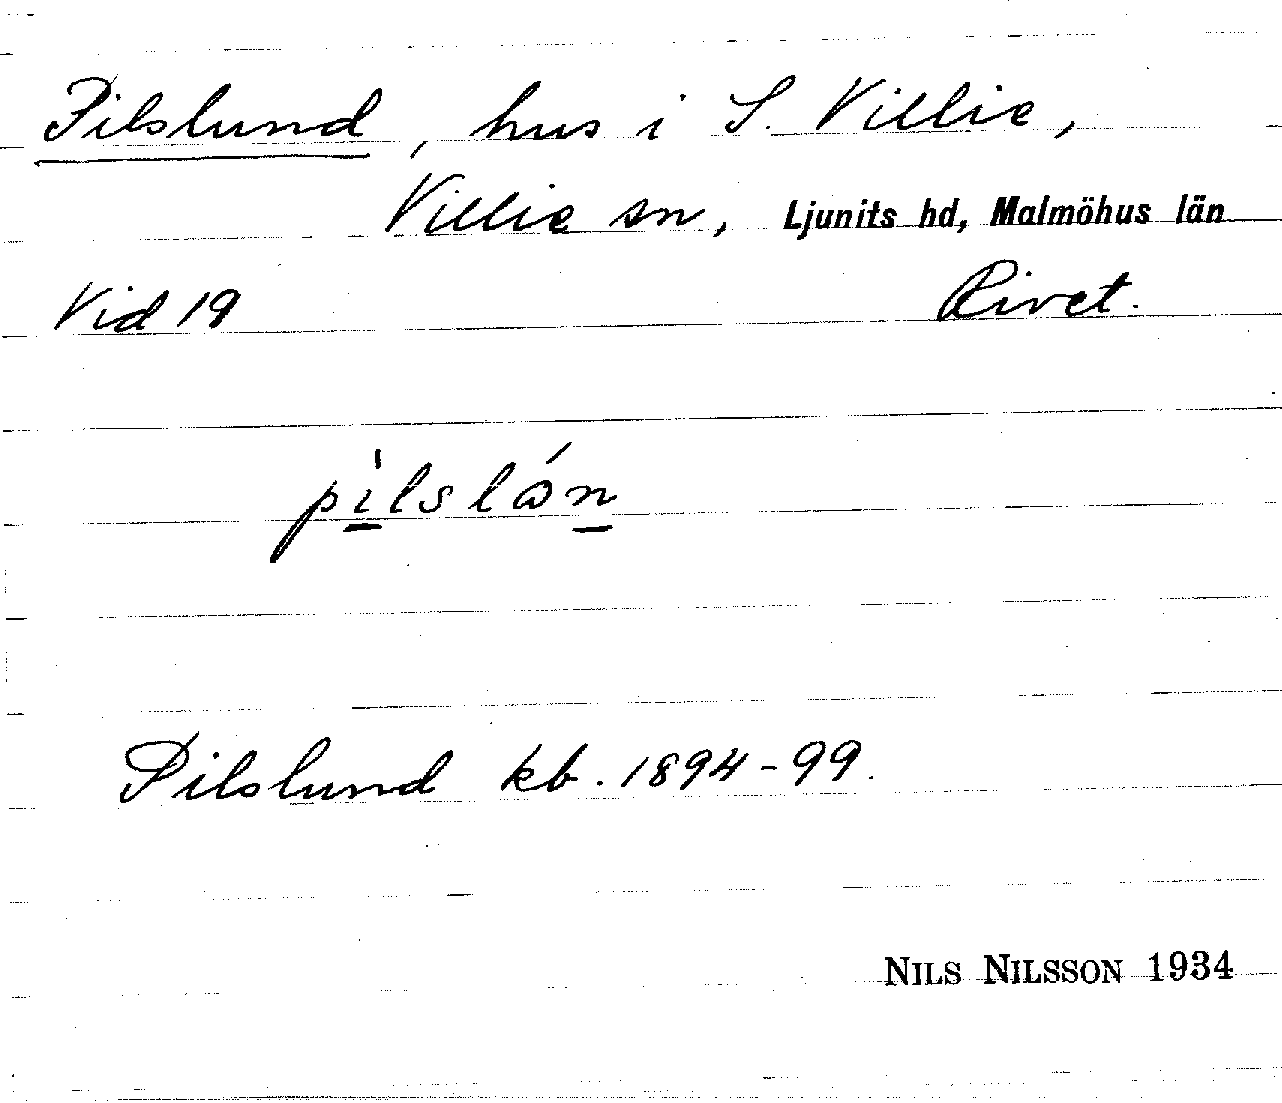 Pilslund, hus i S. Villie,
Villie sn, Ljunits hd, Malmöhus län
Vid 19 Rivet.
pìlslón
Pilslund kb. 1894-99.
NILS NILSSON 1934